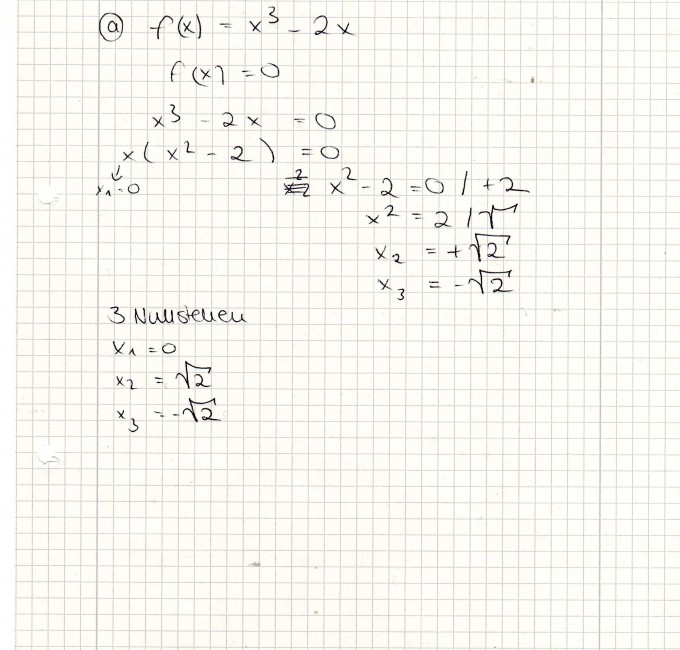 ⓐ f(x) = x³ - 2x
f(x) = 0
x³ - 2x = 0
x(x² - 2) = 0
x₁=0
x² - 2 = 0 | +2
x² = 2 | √
x₂ = +√2
x₃ = -√2
3 Nullstellen
x₁ = 0
x₂ = √2
x₃ = -√2